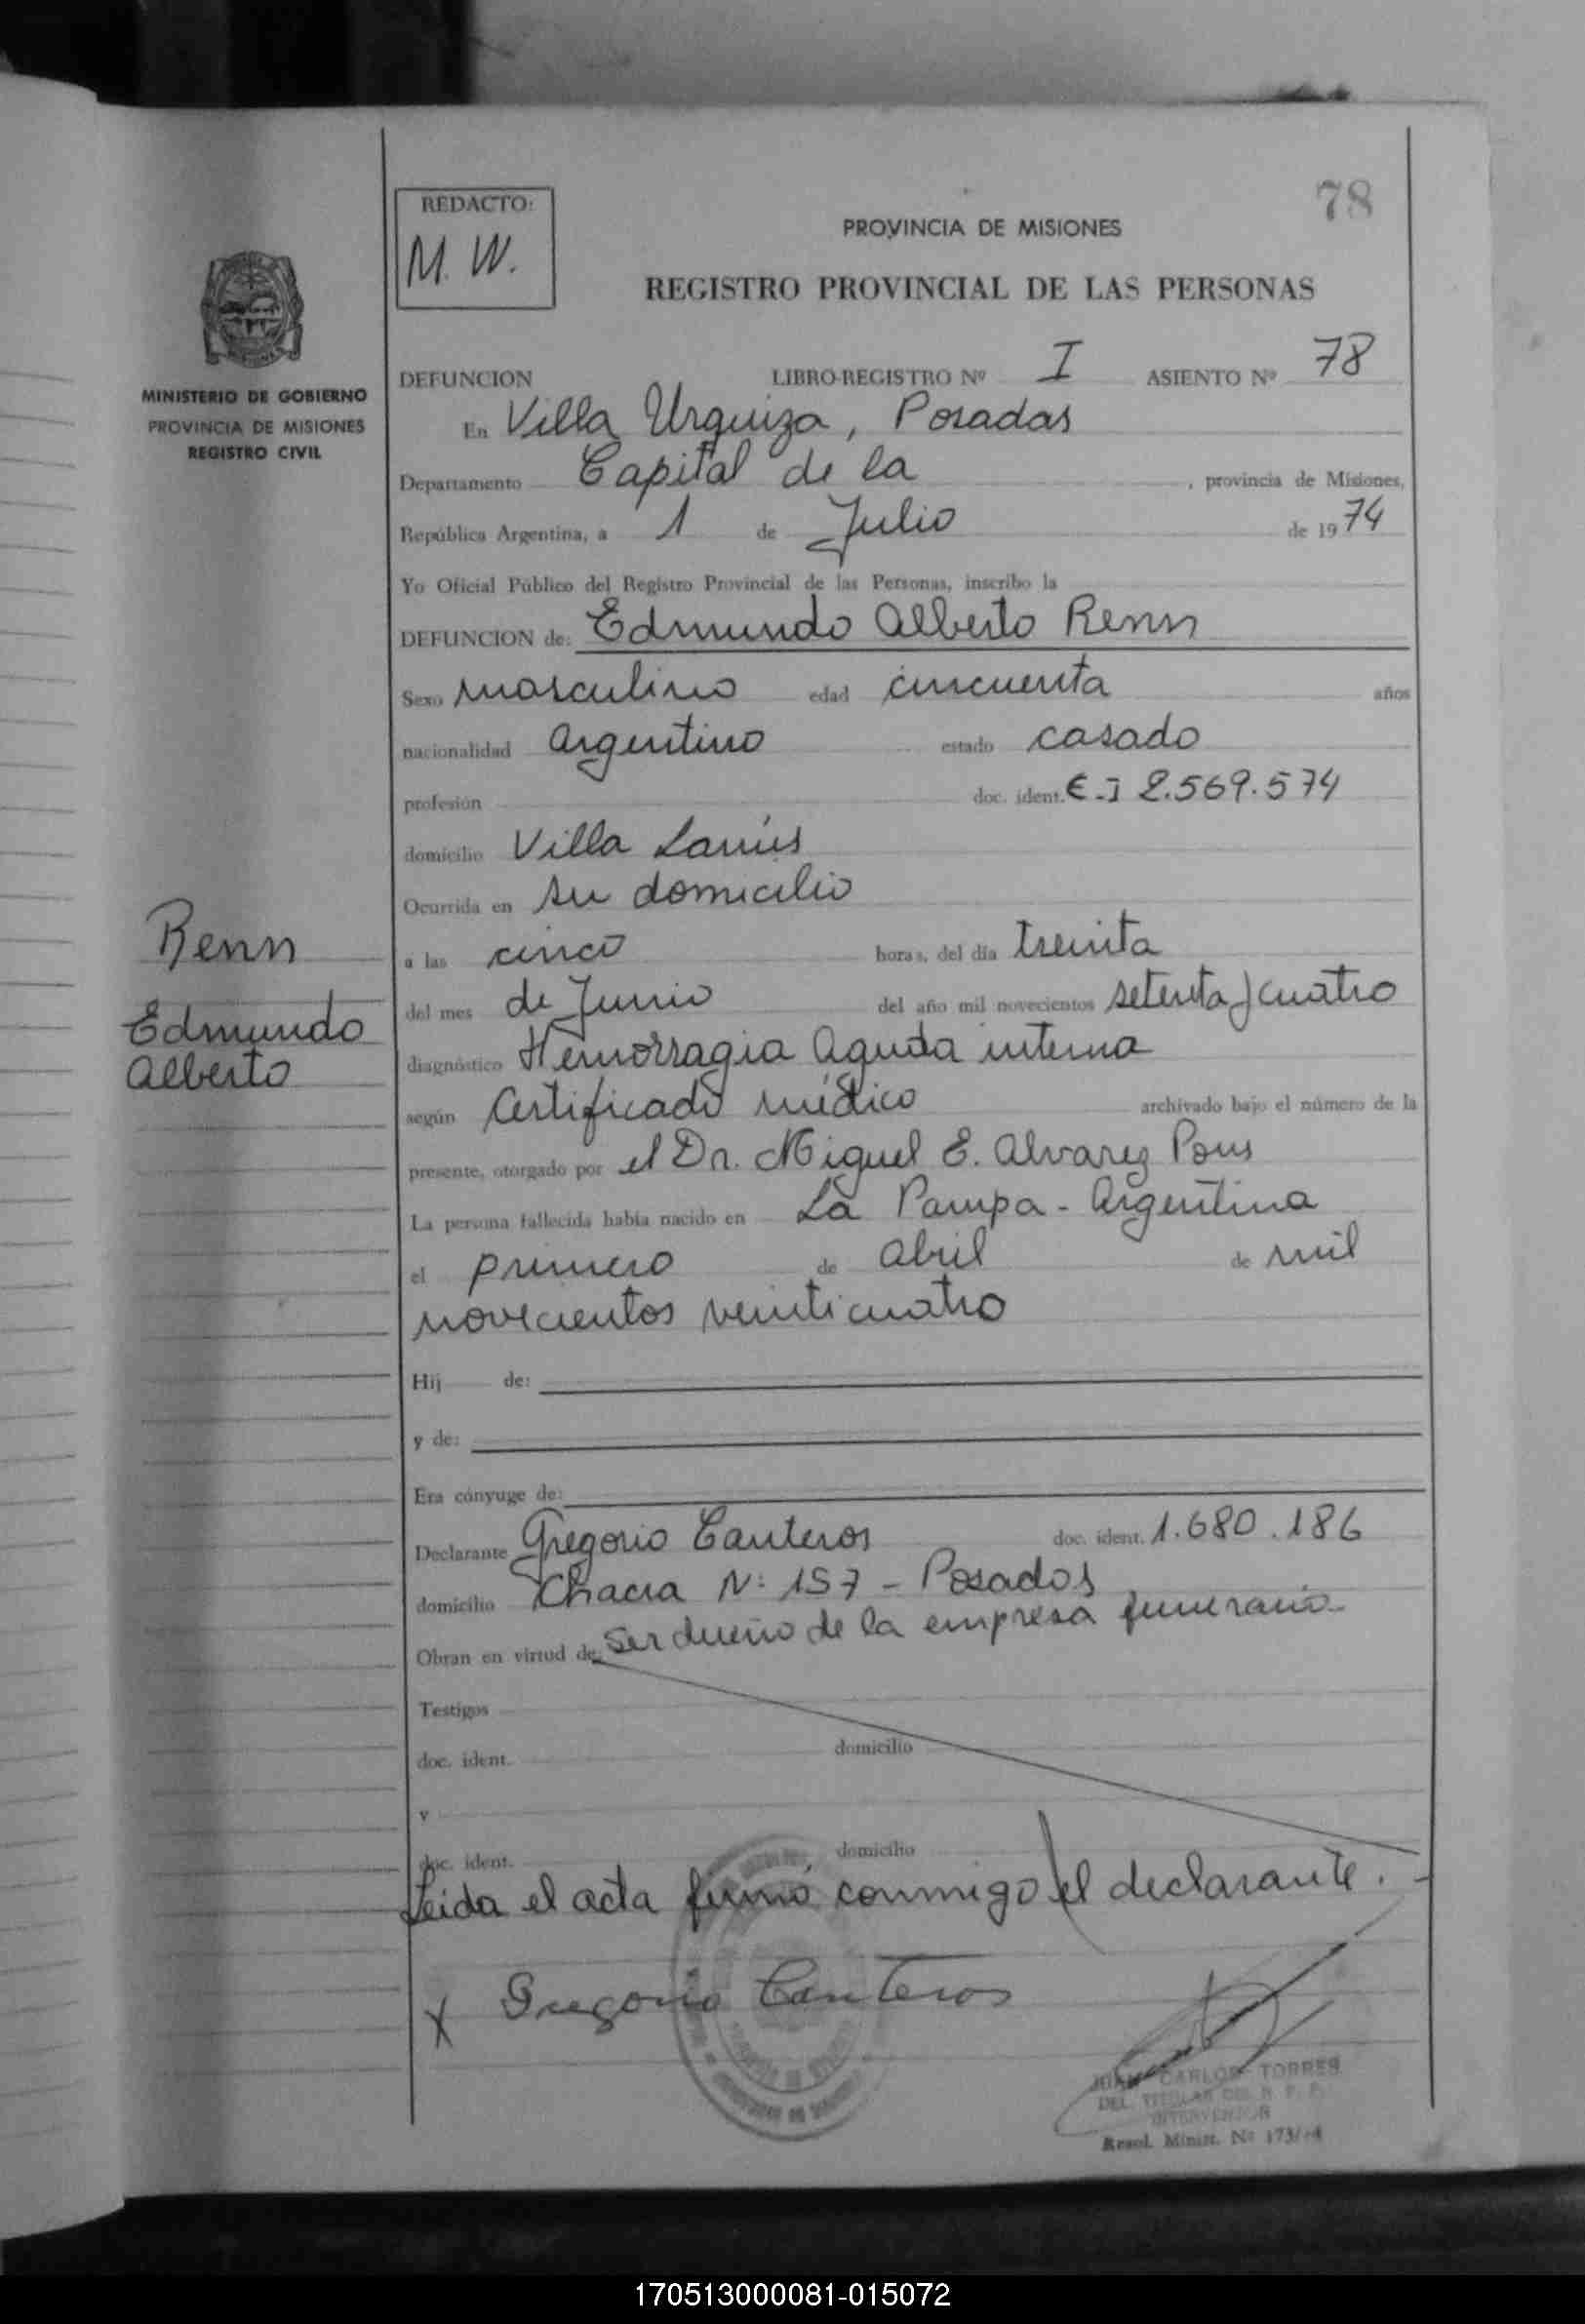 78
REDACTO:
M. W.
PROVINCIA DE MISIONES
REGISTRO PROVINCIAL DE LAS PERSONAS
MINISTERIO DE GOBIERNO
PROVINCIA DE MISIONES
REGISTRO CIVIL
DEFUNCION LIBRO-REGISTRO Nº I ASIENTO Nº 78
En Villa Urquiza, Posadas
Departamento Capital de la , provincia de Misiones,
República Argentina, a 1 de Julio de 1974
Yo Oficial Público del Registro Provincial de las Personas, inscribo la
DEFUNCION de: Edmundo Alberto Renn
Sexo masculino edad cincuenta años
nacionalidad argentino estado casado
profesión doc. ident. C.I 2.569.574
domicilio Villa Lanús
Ocurrida en su domicilio
Renn
Edmundo
Alberto
a las cinco horas, del día treinta
del mes de Junio del año mil novecientos setenta y cuatro
diagnóstico Hemorragia Aguda interna
según Certificado médico archivado bajo el número de la
presente, otorgado por el Dr. Miguel E. Alvarez Pons
La persona fallecida había nacido en La Pampa - Argentina
el primero de abril de mil
novecientos veinticuatro
Hij de:
y de:
Era cónyuge de:
Declarante Gregorio Canteros doc. ident. 1.680.186
domicilio Chacra N: 157 - Posadas
Obran en virtud de ser dueño de la empresa funeraria
Testigos
doc. ident. domicilio
y
doc. ident. domicilio
Leida el acta firmó conmigo el declarante.
X Gregorio Canteros
JUAN CARLOS TORRES
DEL TITULAR DEL R. P. P.
INTERVENTOR
Resol. Minist. Nº 173/74
170513000081-015072